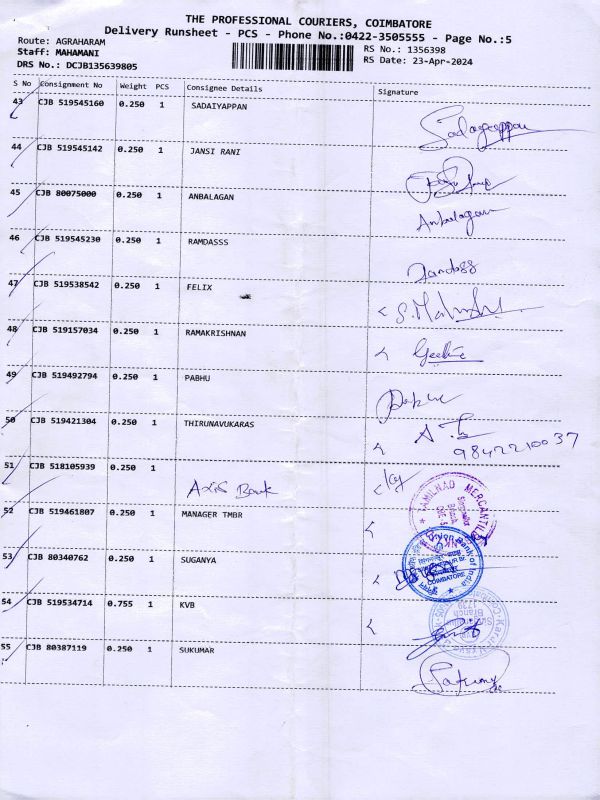 THE PROFESSIONAL COURIERS, COIMBATORE
Delivery Runsheet - PCS - Phone No.:0422-3505555 - Page No.:5
Route: AGRAHARAM
Staff: MAHAMANI RS No.: 1356398
DRS No.: DCJB135639805 RS Date: 23-Apr-2024
S No Consignment No Weight PCS Consignee Details Signature
43 CJB 519545160 0.250 1 SADAIYAPPAN Sadayappan
44 CJB 519545142 0.250 1 JANSI RANI
45 CJB 80075000 0.250 1 ANBALAGAN Anbalagan
46 CJB 519545230 0.250 1 RAMDASSS
47 CJB 519538542 0.250 1 FELIX
48 CJB 519157034 0.250 1 RAMAKRISHNAN
49 CJB 519492794 0.250 1 PABHU
50 CJB 519421304 0.250 1 THIRUNAVUKARAS 9842210037
51 CJB 518105939 0.250 1 Axis Bank
52 CJB 519461807 0.250 1 MANAGER TMBR TAMILNAD MERCANTILE
53 CJB 80340762 0.250 1 SUGANYA Union Bank of India COIMBATORE
54 CJB 519534714 0.755 1 KVB
55 CJB 80387119 0.250 1 SUKUMAR